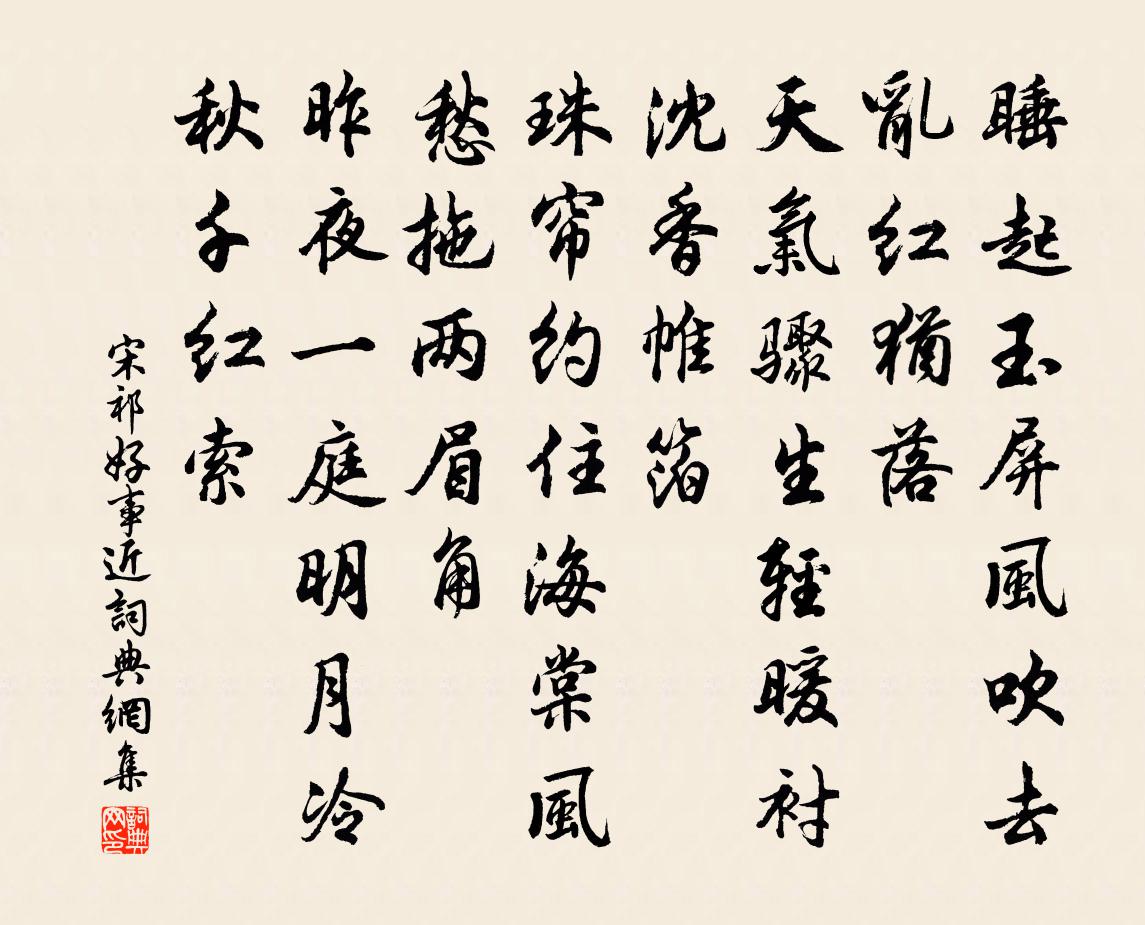 睡起玉屏風吹去
亂红猶落
天氣驟生輕暖襯
沈香帷箔
珠帘约住海棠風
愁拖两眉角
昨夜一庭明月冷
秋千红索
宋祁好事近詞典網集
詞典网印